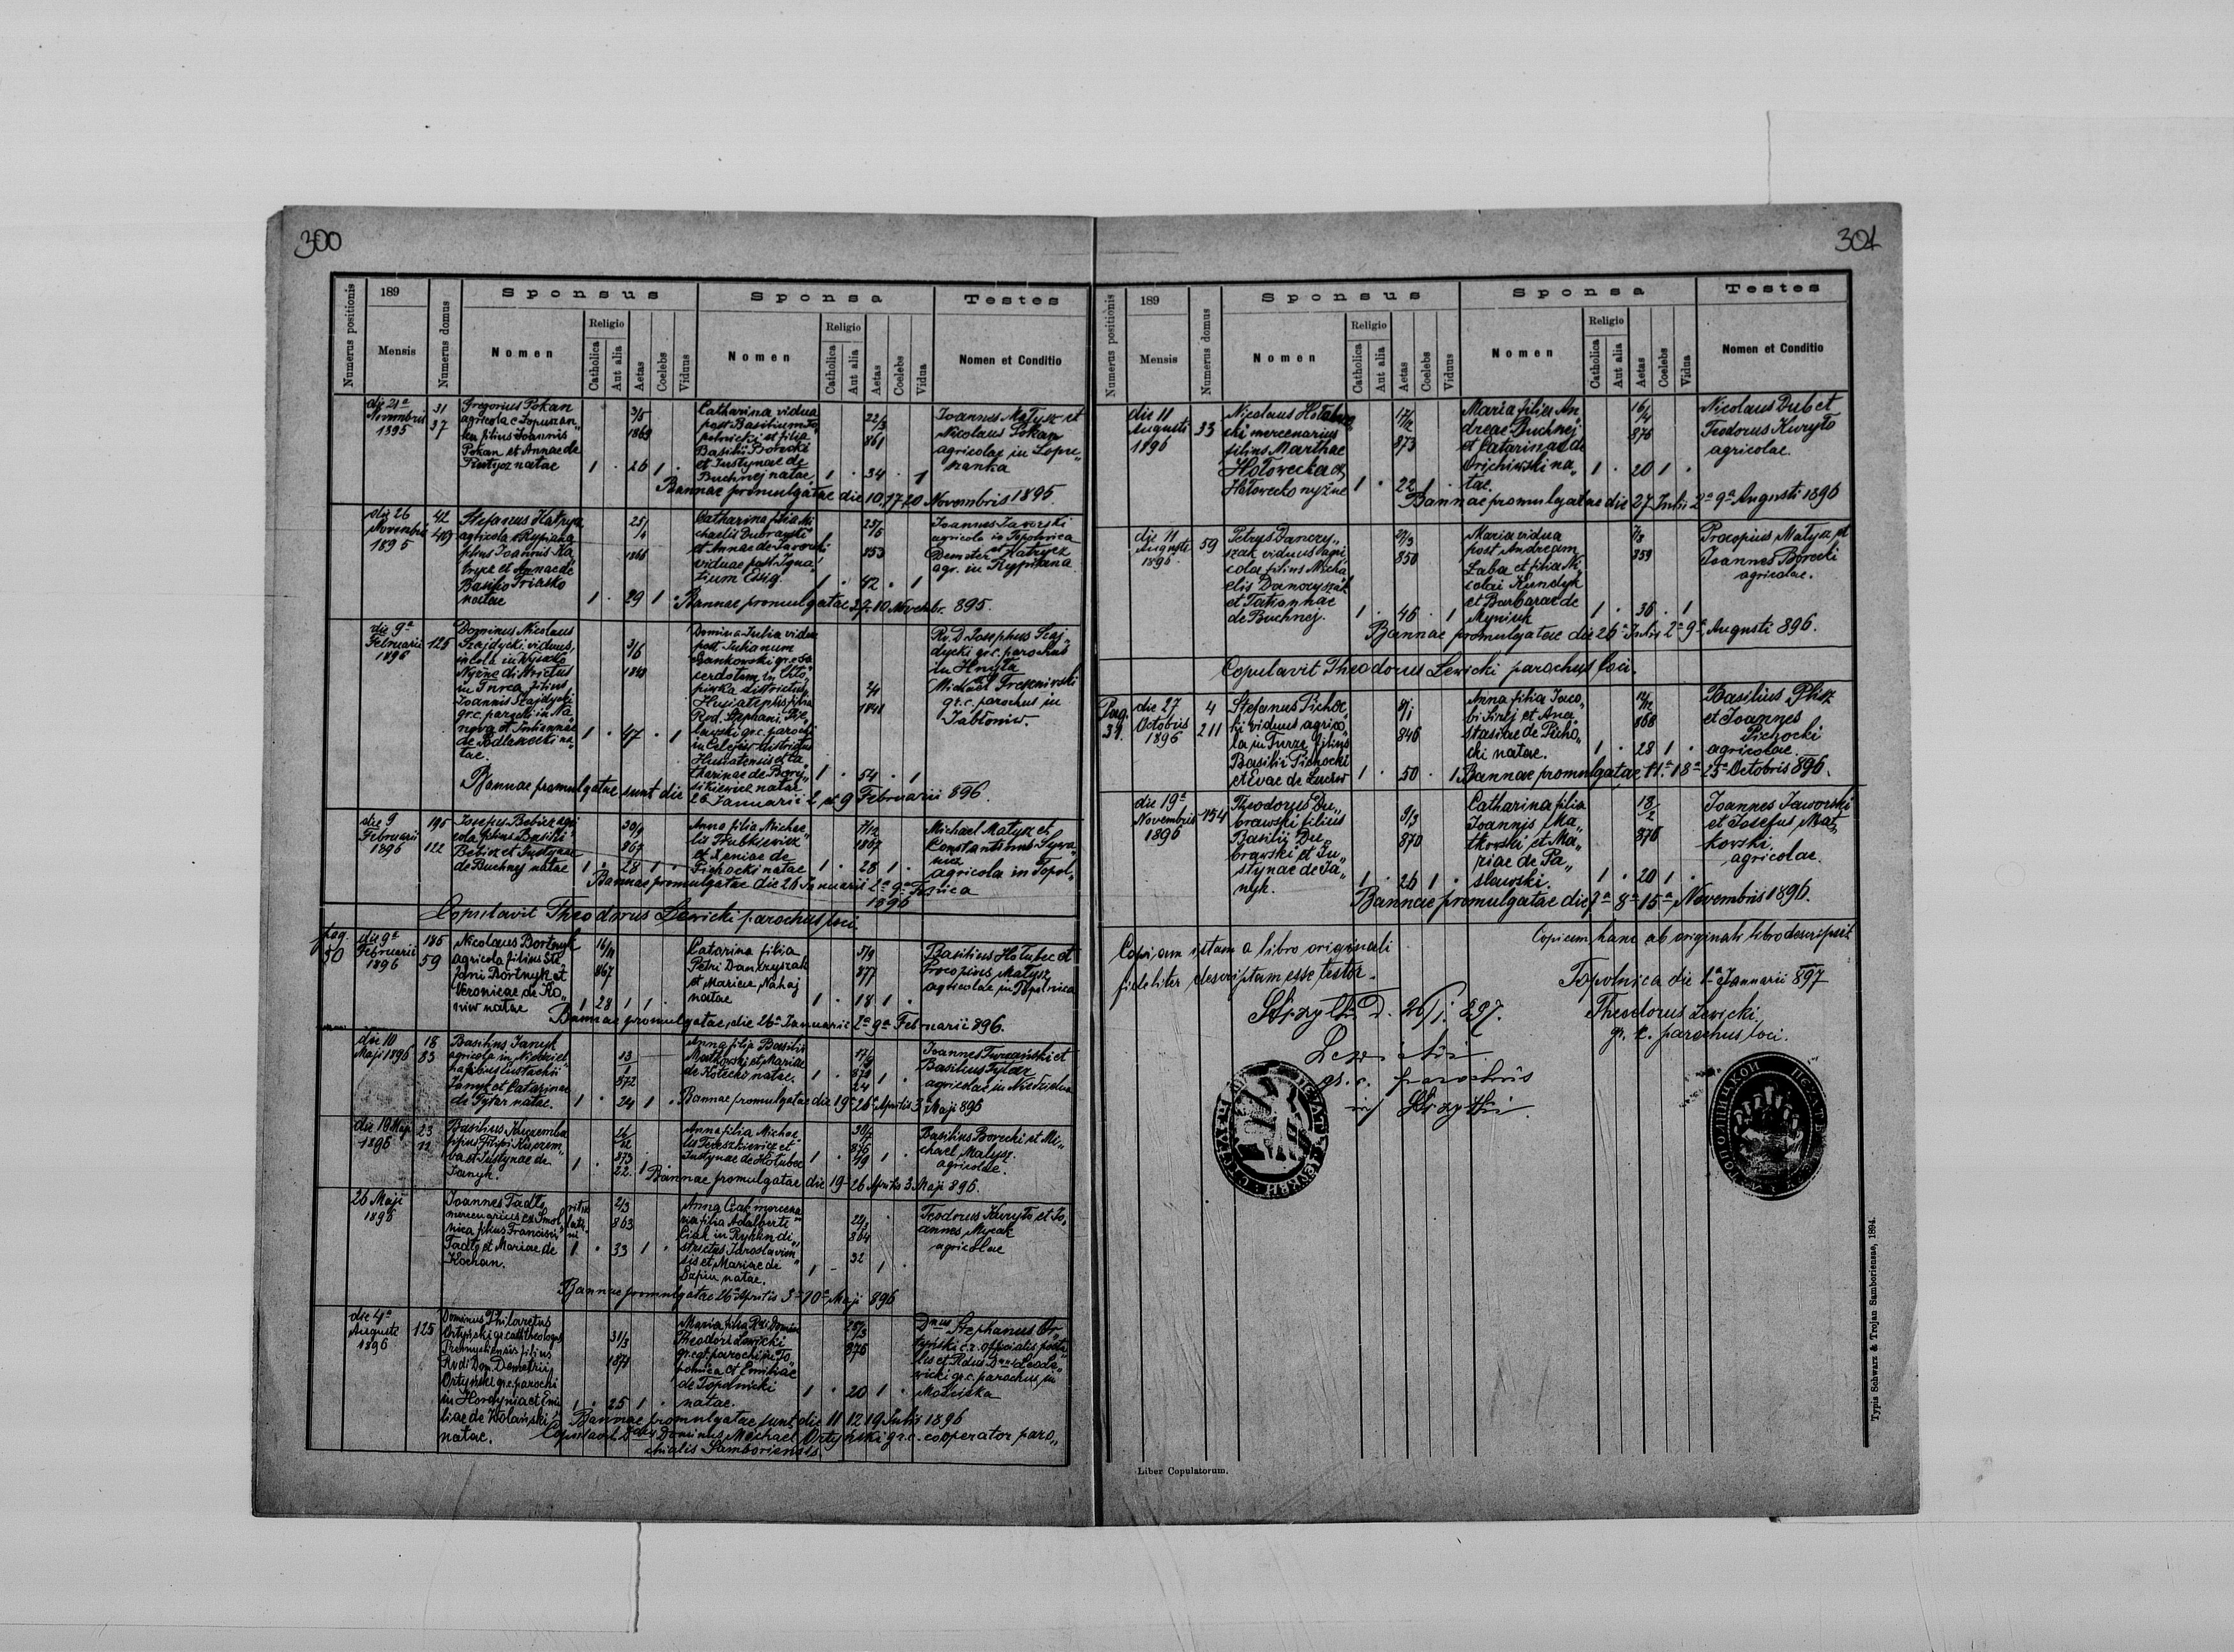 300
Numerus positionis
189
Mensis
Numerus domus
Sponsus
Nomen
Religio
Catholica
Aut alia
Aetas
Coelebs
Viduus
Sponsa
Nomen
Religio
Catholica
Aut alia
Aetas
Coelebs
Vidua
Testes
Nomen et Conditio
die 21a
Novembris
1895
31
37
Gregorius Pokan
agricola e Łopuszan„
ka filius Joannis
Pokan et Annae de
natae
1 . 26 1 .
3/5
1869
Catharina vidua
post Basilium To„
polnicki et filia
Basilii Borecki
et Justynae de
Buchnej natae
22/3
861
1 . 34 . 1
Joannes Matysz et
Nicolaus Pokan
agricolae in Łopu„
szanka
Bannae promulgatae die 10, 17, 20 Novembris 1895.
die 26
Novembris
1895
42
Stefanus Hatrycz
agricola
filius Joannis Ha„
trycz et Annae de
Basilio
natae
1 . 29 1 .
25/4
1866
Catharina filia Mi„
chaelis Dubrawski
et Annae de Jaworski
viduae post Igna„
tium
25/5
853
1 . 42 . 1
Joannes Jaworski
agricola in Topolnica
Demeter et Hatrycz
agr. in
Bannae promulgatae 3, 10 Novembr. 895.
die 9a
Februarii
1896
125
Dominus Nicolaus
viduus,
incola in Wysocko
Nyżne districtus
in Turca filius
Joannis
gr. c. parochi in
et Julianna
de natae.
1 . 47 . 1
3/6
1848
Domina Julia vidua
post Julianum
Bankowski gr. c. sa
cerdotem in
districtus
Husiatensis filia
Rvd. Stephani
gr. c. parochi
in districtus
Husiatensis et Ca„
tharinae de
natae
1841
1 . 54 . 1
Rv. D. Josephus
gr. c. parochus
in Hnyła
et
Michael
gr. c. parochus in
Jabłoniw.
Bannae promulgatae sunt die 26 Januarii 2 et 9 Februarii 896.
die 9
Februarii
1896
195
122
Josephus Bebicz agri
cola filius Basilii
Bebicz et Justynae
de Buchnej natae
1 . 28 1 .
30/9
867
Anna filia Michae„
lis
et Xeniae de
Pichocki natae
7/12
1867
1 . 28 1 .
Michael Matysz et
Constantinus
agricola in Topol„
nica
Bannae promulgatae die 26 Januarii 2a 9a
1896
Copulavit Theodorus Lewicki parochus loci
pag.
50
die 9a
Februarii
1896
185
59
Nicolaus Bortnyk
agricola filius Ste
fani Bortnyk et
Veronicae de Ko„
niw natae
1 28 1 1 .
16/11
867
Catarina filia
Petri Danczyszak
et Mariae Nahaj
natae
5/9
877
1 . 18 1 .
Basilius Hołubec et
Procopius Matysz
agricolae in Topolnica
Bannae promulgatae, die 26a Januarii 2a 9a Februarii 896.
die 10
Maji 1896
18
83
Basilius Janyk
agricola in Niedziel
na filius Eustachii
Janyk et Catarinae
de Pytar natae.
1 . 24 1 .
13
1
872
Anna filia Basilii
Matkowski et Mariae
de Kotecko natae.
17/9
24
1 . 1 .
Joannes Turzański et
Basilius Pytar
agricolae in Niedzielna
Bannae promulgatae die 19a 26a Aprilis 3a Maji 896
die 19 Maji
1896
23
Basilius Kuczemba
filius Filipi Kuczem„
ba et Justynae de
Janyk.
1 . 22. 1
873
Anna filia Michae„
lis Tereszkiewicz et
Justynae de Hołubec
30/7
876
1 . 19 1 .
Basilius Borecki et Mi„
chael Matysz
agricolae.
Bannae promulgatae die 19 26 Aprilis 3 Maji 896.
26 Maji
1896
Joannes Fadło
mercenarius ex Smol
nica filius Francisci
Fadło et Mariae de
Kochan.
ritus
lati„
ni
1 . 33 1 .
2/3
863
Anna Ciak mercena
ria filia Adalberti
Ciak in di„
strictus Jaroslavien„
sis et Mariae de
natae.
22/3
864
32
1 - 1 .
Teodorus Kuryło et Jo„
annes Mycak
agricolae
Bannae promulgatae 26a Aprilis 3a 10a Maji 896
die 4a
Augusti
1896
125
Dominus Philaretus
Ortyński gr. cath. theologus
Premysliensis filius
Rvdi Dom. Demetrii
Ortyński gr. c. parochi
in Hordynia et Emi
liae de Wolański
natae.
1 . 25 1 .
31/3
1871
Maria filia Rvdi Domini
Theodori Lewicki
gr. cat. parochi in To„
polnica et Emiliae
de Topolnicki
natae.
25/3
876
1 . 20 1 .
Dnus Stephanus Or„
tyński c. r. officialis posta„
lis et Rdus Dnus
gr. c. parochus in
Mościska
Bannae promulgatae sunt die 11 12 19 Julii 1896
Copulavit Rdus Dominus Michael Ortyński gr. c. cooperator paro„
chialis Samboriensis.
301
Numerus positionis
189
Mensis
Numerus domus
Sponsus
Nomen
Religio
Catholica
Aut alia
Aetas
Coelebs
Viduus
Sponsa
Nomen
Religio
Catholica
Aut alia
Aetas
Coelebs
Vidua
Testes
Nomen et Conditio
die 11
Augusti
1896
33
Nicolaus Hołowec„
cki mercenarius
filius Marthae
Hołowecka ex
Hołowecko nyżne
1 . 22 1 .
17/12
873
Maria filia An„
dreae Buchnej
et Catarinae de
Orichiwski na„
tae.
16/4
876
1 . 20 1 .
Nicolaus Dub et
Teodorus Kuryło
agricolae.
Bannae promulgatae die 27 Julii 2a 9a Augusti 1896
die 11
Augusti
1896.
59
Petrus Danczy„
szak viduus agri„
cola filius Micha
elis Danczyszak
et Tatiannae
de Buchnej.
1 . 46 . 1
29/3
850
Maria vidua
post Andream
Łaba et filia Ni„
colai Kundyk
et Barbarae de
Myniuk
7/8
859
1 . 36 . 1
Procopius Matysz et
Joannes Borecki
agricolae.
Bannae promulgatae die 26a Julii 2a 9a Augusti 896.
Copulavit Theodorus Lewicki parochus loci.
Pag.
31.
die 27
Octobris
1896
4
211
Stefanus Pichoc„
ki viduus agrico„
la in Turze filius
Basilii Pichocki
et Evae de Luciw
1 . 50 . 1
8/1
846
Anna filia Jaco„
bi et Ana„
stasiae de Picho„
cki natae.
14/12
868
1 . 28 1 .
Basilius Plisz
et Joannes
Pichocki
agricolae
Bannae promulgatae 11a 18a 25a Octobris 896.
die 19a
Novembris
1896
154
Theodorus Du„
brawski filius
Basilii Du„
brawski et Ju„
stynae de Ja„
nyk.
1 . 26 1 .
9/3
870
Catharina filia
Joannis Ma„
tkowski et Ma„
riae de Pa„
sławski.
18/2
876
1 . 20 1 .
Joannes Jaworski
et Josefus Mat„
kowski.
agricolae.
Bannae promulgatae die 1a 8a 15a Novembris 1896.
Copiam istam a libro originali
fideliter descriptam esse testor.
D. 26/I. 897.
Lewicki
gr. c. parochus
in
Copiam hanc ab originali libro descripsit
Topolnica die 1a Januarii 897
Theodorus Lewicki.
gr. c. parochus loci.
Liber Copulatorum.
Typis Schwarz & Trojan Samboriensae, 1894.